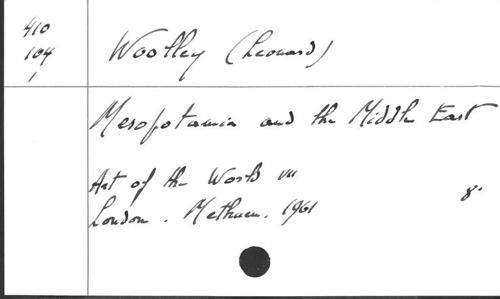 410
104
1
Woolley (Leonard)
Mesopotamia and the Middle East
Art of the World VII
London. Methuen. 1961
8°